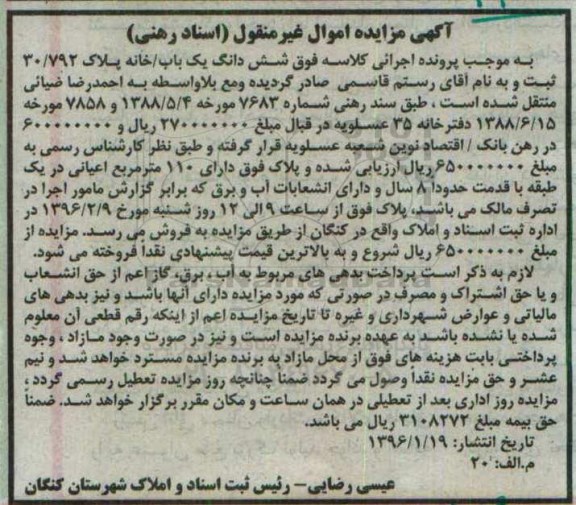 آگهی مزایده اموال غیرمنقول (اسناد رهنی)
به موجب پرونده اجرائی کلاسه فوق شش دانگ یک باب/خانه پلاک ۳۰/۷۹۲
ثبت و به نام آقای رستم قاسمی صادر گردیده ومع بلاواسطه به احمدرضا ضیائی
منتقل شده است ، طبق سند رهنی شماره ۷۶۸۳ مورخه ۱۳۸۸/۵/۴ و ۷۸۵۸ مورخه
۱۳۸۸/۶/۱۵ دفترخانه ۳۵ عسلویه در قبال مبلغ ۲۷۰۰۰۰۰۰۰ ریال و ۶۰۰۰۰۰۰۰۰
در رهن بانک / اقتصاد نوین شعبه عسلویه قرار گرفته و طبق نظر کارشناس رسمی به
مبلغ ۶۵۰۰۰۰۰۰۰ ریال ارزیابی شده و پلاک فوق دارای ۱۱۰ مترمربع اعیانی در یک
طبقه با قدمت حدودا ۸ سال و دارای انشعابات آب و برق که برابر گزارش مامور اجرا در
تصرف مالک می باشد، پلاک فوق از ساعت ۹ الی ۱۲ روز شنبه مورخ ۱۳۹۶/۲/۹ در
اداره ثبت اسناد و املاک واقع در کنگان از طریق مزایده به فروش می رسد. مزایده از
مبلغ ۶۵۰۰۰۰۰۰۰ ریال شروع و به بالاترین قیمت پیشنهادی نقداً فروخته می شود.
لازم به ذکر است پرداخت بدهی های مربوط به آب ، برق، گاز اعم از حق انشعاب
و یا حق اشتراک و مصرف در صورتی که مورد مزایده دارای آنها باشد و نیز بدهی های
مالیاتی و عوارض شهرداری و غیره تا تاریخ مزایده اعم از اینکه رقم قطعی آن معلوم
شده یا نشده باشد به عهده برنده مزایده است و نیز در صورت وجود مازاد ، وجوه
پرداختی بابت هزینه های فوق از محل مازاد به برنده مزایده مسترد خواهد شد و نیم
عشر و حق مزایده نقداً وصول می گردد ضمناً چنانچه روز مزایده تعطیل رسمی گردد ،
مزایده روز اداری بعد از تعطیلی در همان ساعت و مکان مقرر برگزار خواهد شد. ضمناً
حق بیمه مبلغ ۳۱۰۸۲۷۲ ریال می باشد.
تاریخ انتشار: ۱۳۹۶/۱/۱۹
م.الف: ۲۰
عیسی رضایی- رئیس ثبت اسناد و املاک شهرستان کنگان